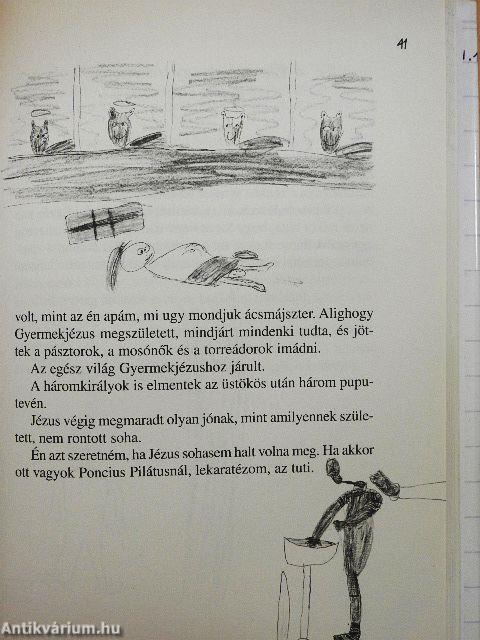 41
1.1
volt, mint az én apám, mi ugy mondjuk ácsmájszter. Alighogy
Gyermekjézus megszületett, mindjárt mindenki tudta, és jöt-
tek a pásztorok, a mosónők és a torreádorok imádni.
Az egész világ Gyermekjézushoz járult.
A háromkirályok is elmentek az üstökös után három pupu-
tevén.
Jézus végig megmaradt olyan jónak, mint amilyennek szüle-
tett, nem rontott soha.
Én azt szeretném, ha Jézus sohasem halt volna meg. Ha akkor
ott vagyok Poncius Pilátusnál, lekaratézom, az tuti.
Antikvárium.hu